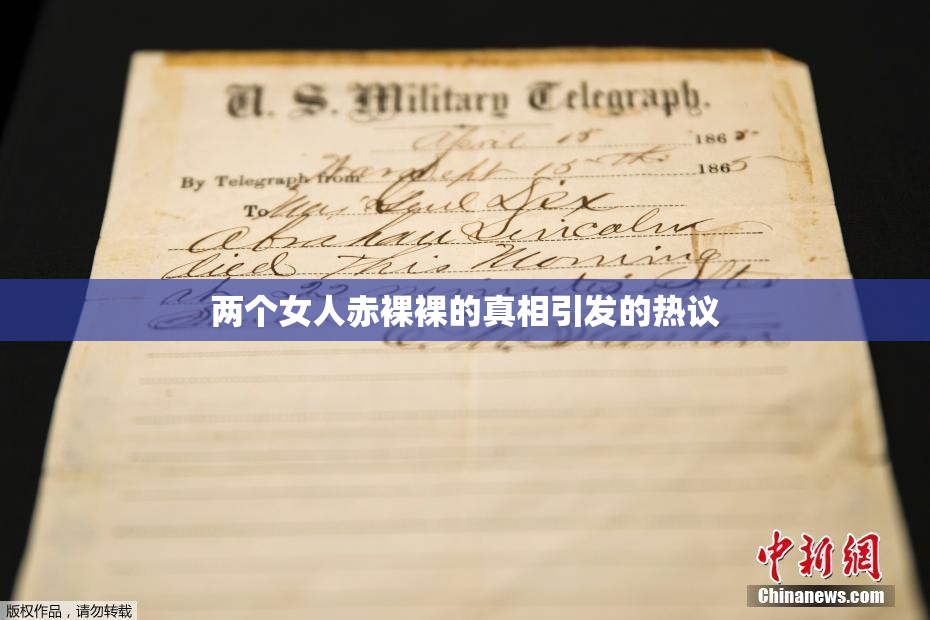 U. S. Military Telegraph.
April 15 1865
By Telegraph from War Dept 15th 1865
To Maj Genl Dix
Abraham Lincoln
died This Morning
at 22 minutes after
两个女人赤裸裸的真相引发的热议
E. M. Stanton
中新網
Chinanews.com
版权作品，请勿转载